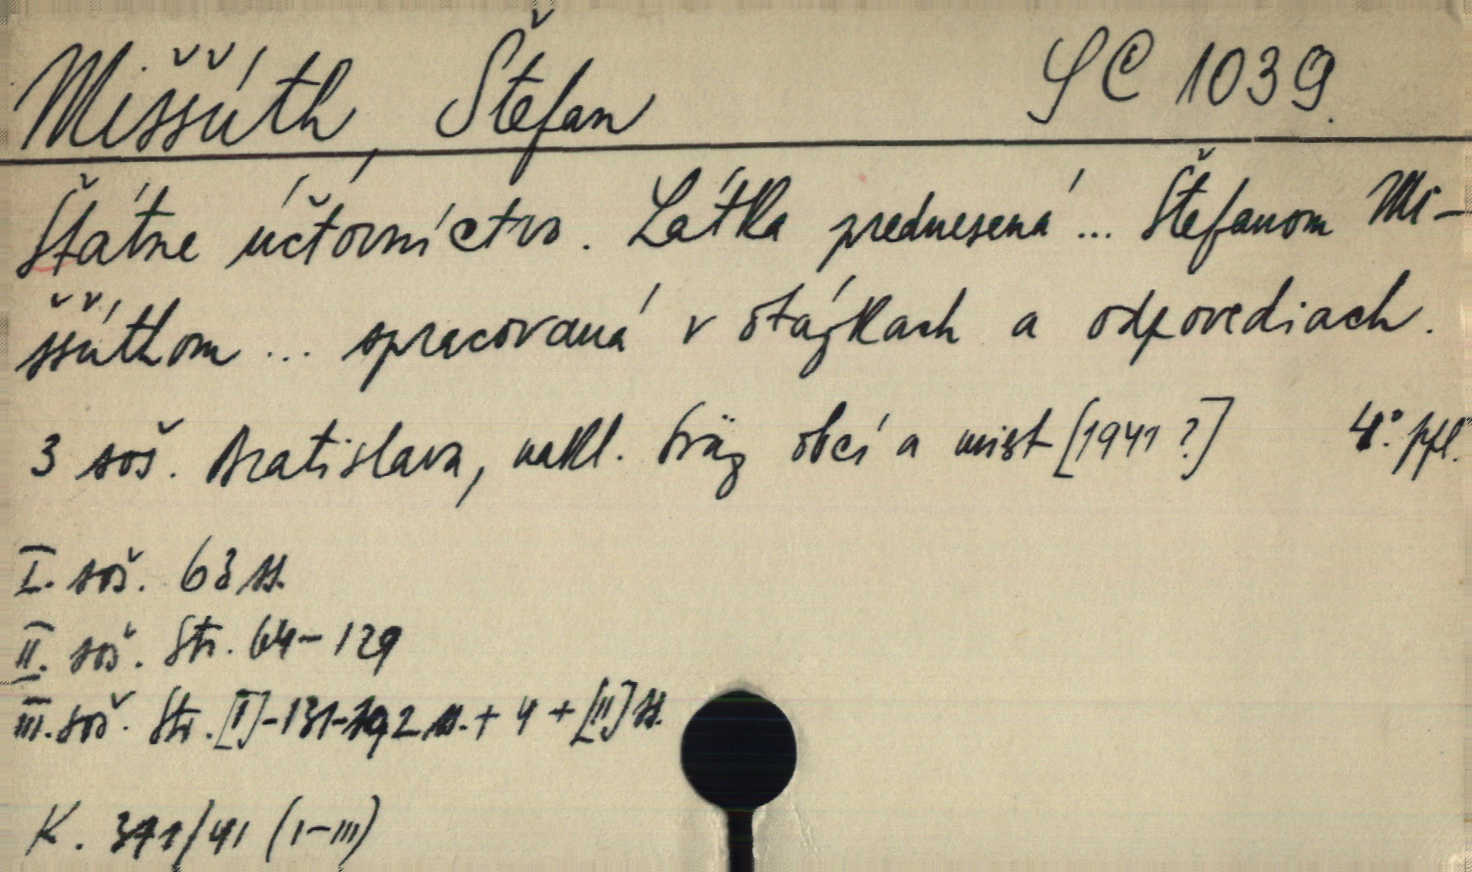 Miššúth, Štefan SC 1039.
Štátne účtovníctvo. Látka prednesená ... Štefanom Mi-
ššúthom ... spracovaná v otázkach a odpovediach.
3 soš. Bratislava, nakl. Sväz obcí a miest [1941?] 4°. ppl.
I. soš. 63 ss.
II. soš. Str. 64-129
III. soš. Str. [I]-131-192 ss. + 4 + [II] ss.
K. 371/41 (I-III)